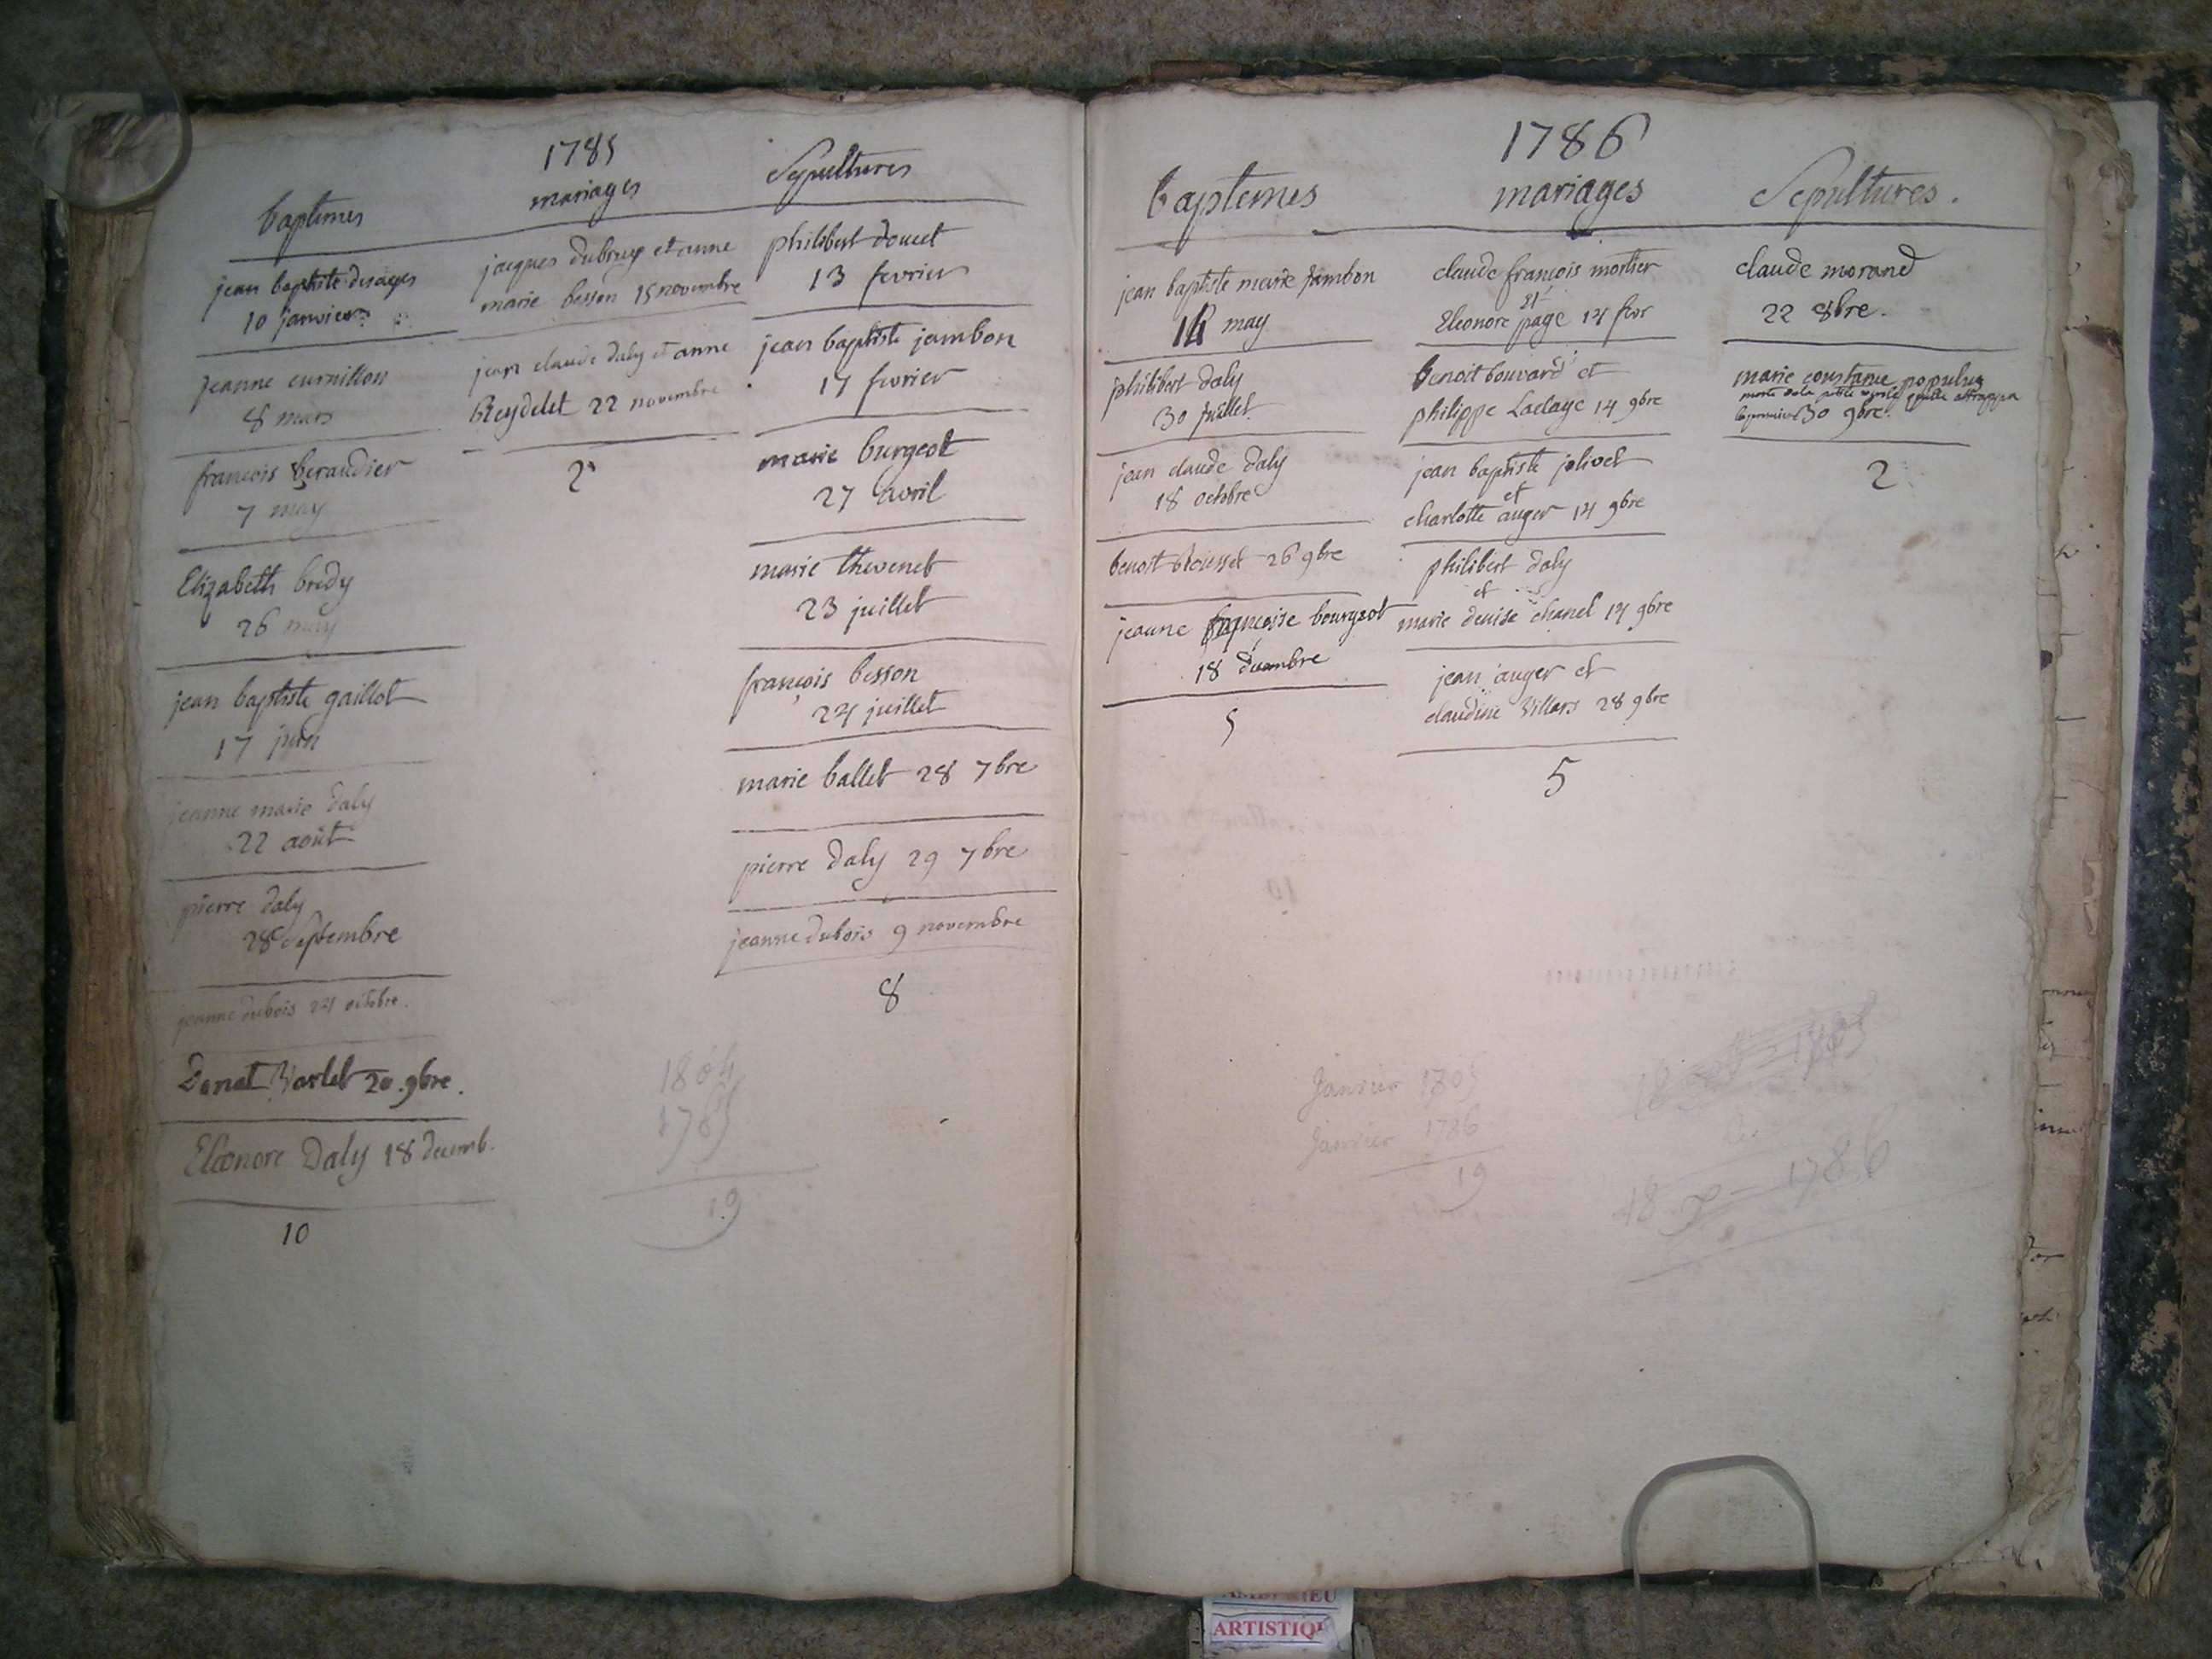 1785
baptemes
mariages
Sepultures
jean baptiste desayes
10 janvier
jeanne curnillon
8 mars
françois beraudier
7 may
Elizabeth bredy
26 may
jean baptiste gaillot
17 juin
jeanne marie daly
22 août
pierre daly
28 septembre
jeanne dubois 24 octobre.
Donat Varlet 20 9bre.
Eleonore Daly 18 decemb.
10
jacques et anne
marie besson 15 novembre
jean claude daly et anne
Reydelet 22 novembre
2
philibert doucet
13 fevrier
jean baptiste jambon
17 fevrier
marie burgeot
27 avril
marie thevenet
23 juillet
françois besson
24 juillet
marie ballet 28 7bre
pierre daly 29 7bre
jeanne dubois 9 novembre
8
1804
1785
19
1786
baptemes
mariages
Sepultures.
jean baptiste marie jambon
may
philibert daly
30 juillet
jean claude daly
18 octobre
benoit 26 9bre
jeanne françoise bourgeot
18 decembre
5
claude françois mortier
et
Eleonore page 14 fvr
benoit bouvard et
philippe Laclaye 14 9bre
jean baptiste jolivet
et
charlotte auger 14 9bre
philibert daly
et
marie denise chanel 14 9bre
jean auger et
claudine Villars 28 9bre
5
claude morand
22 8bre.
marie constance populus
morte de la petite verole qu'elle attrappa
30 9bre.
2
Janvier 1805
Janvier 1786
19
1786
ARTISTIQU